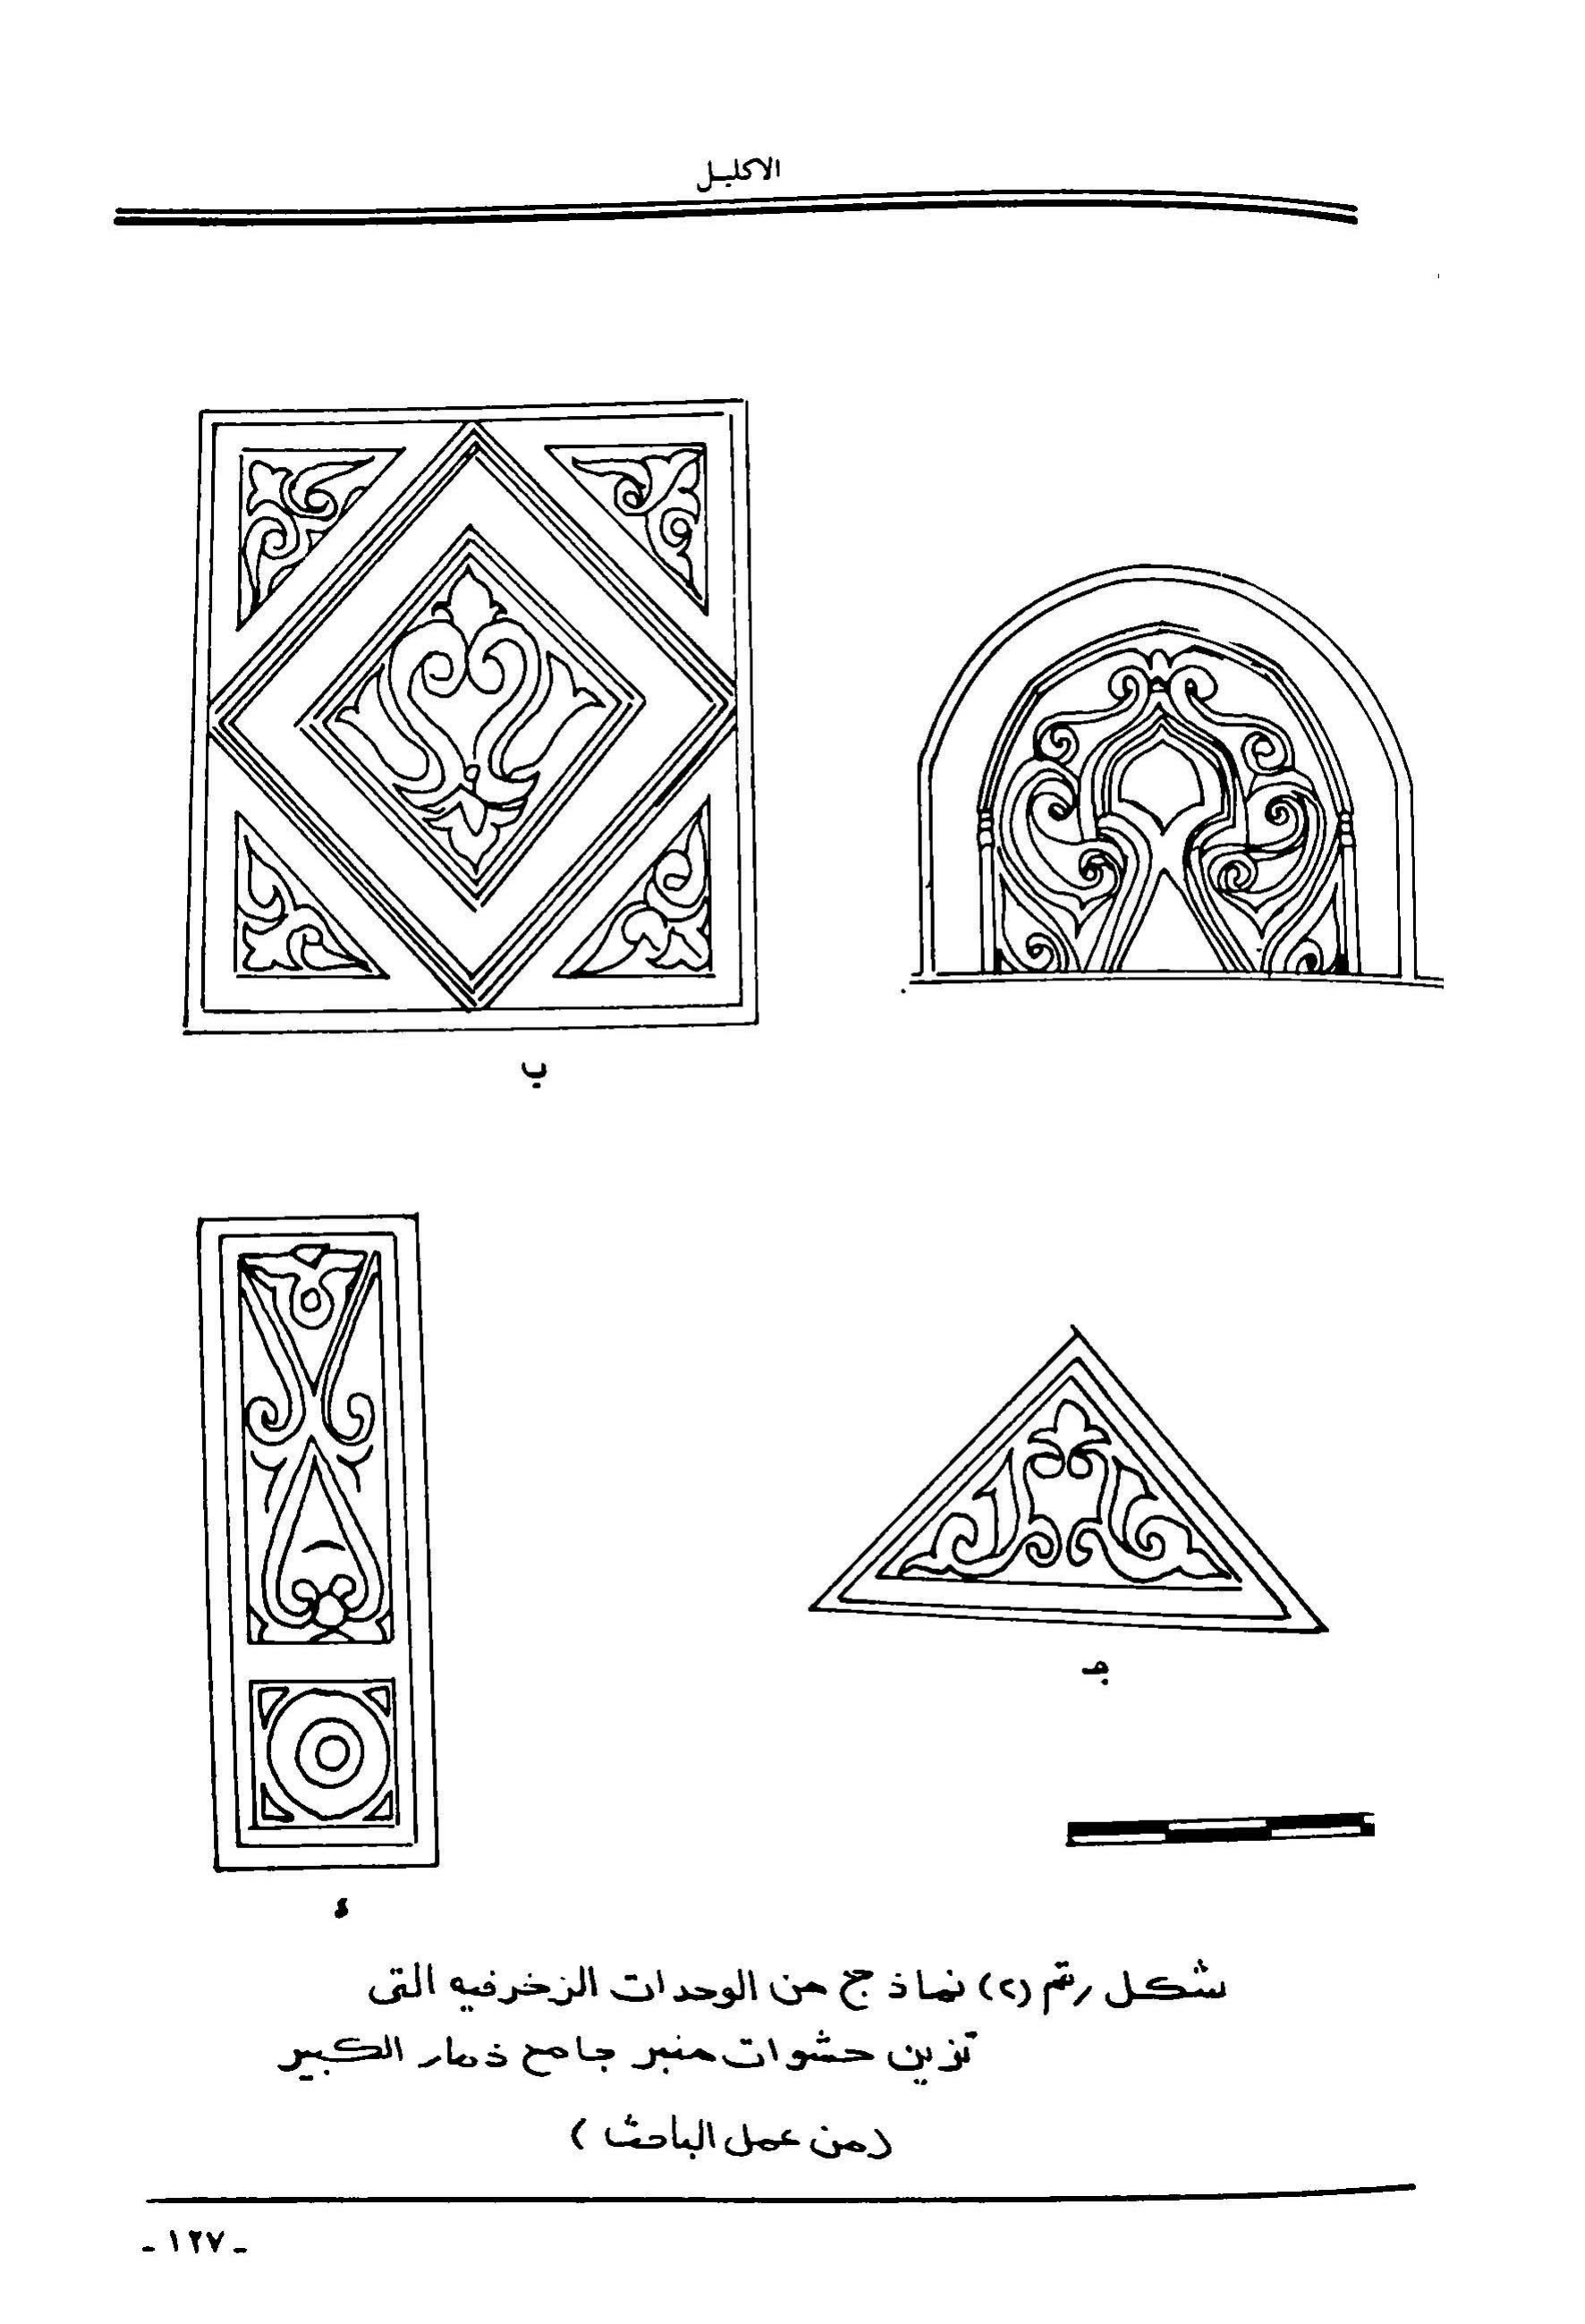 الاكليل
ب
جـ
د
شكل رقم (٢) نماذج من الوحدات الزخرفيه التى
تزين حشوات منبر جامع ذمار الكبير
(من عمل الباحث)
- ١٢٧ -